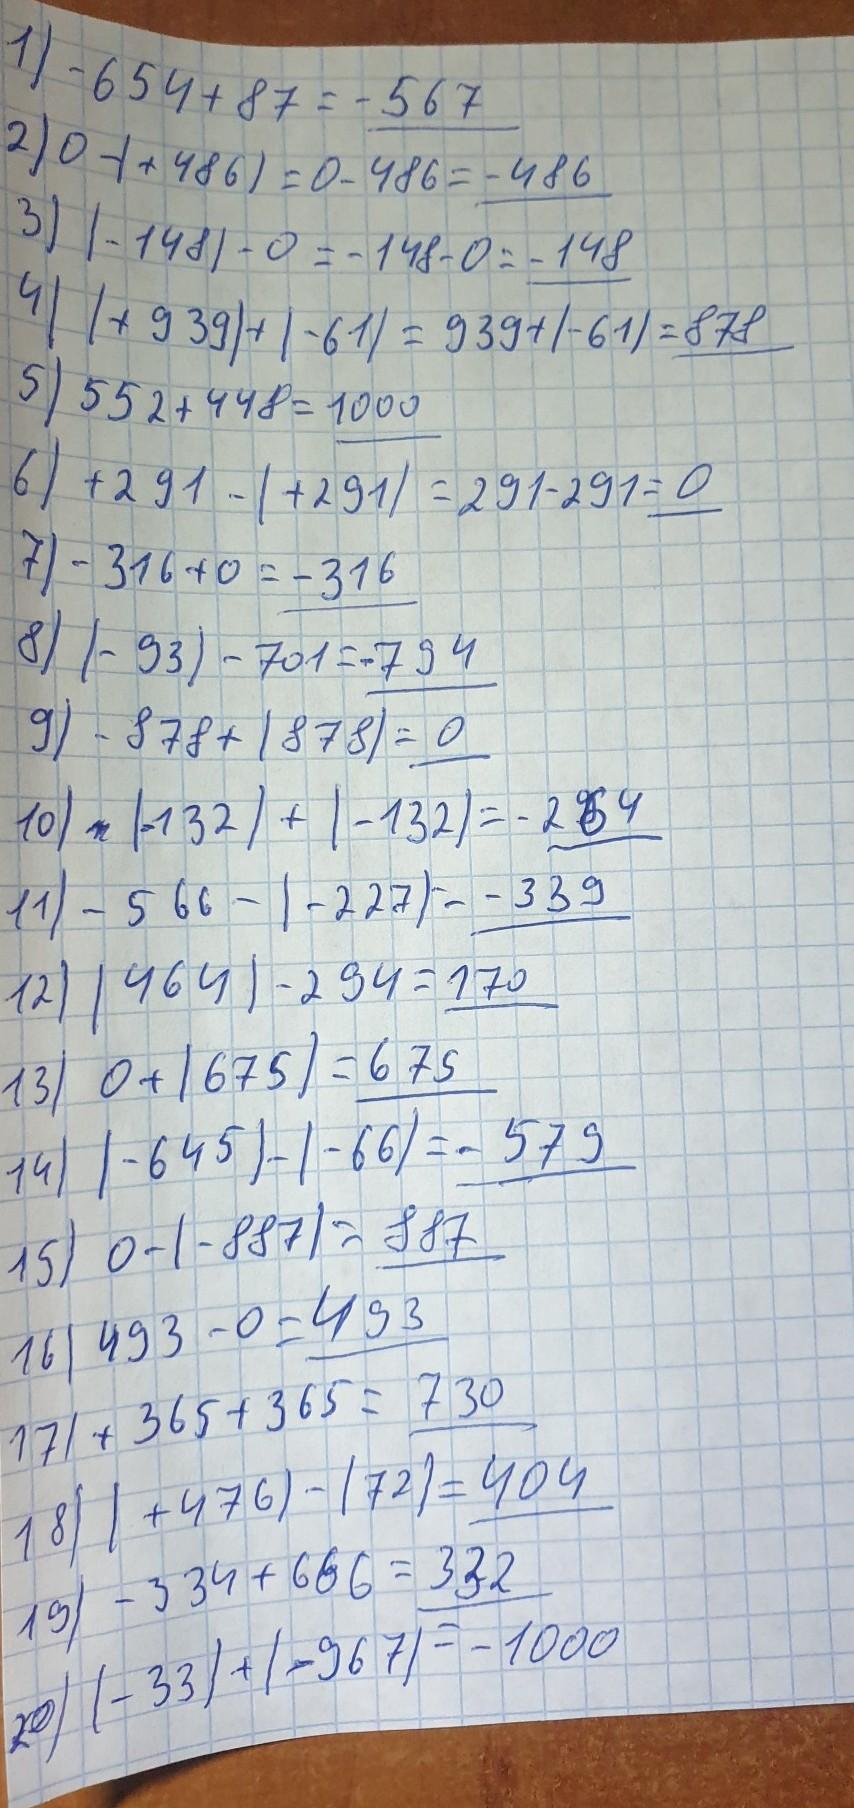 1) -654+87=-567
2) 0-(+486)=0-486=-486
3) (-148)-0=-148-0=-148
4) (+939)+(-61)=939+(-61)=878
5) 552+448=1000
6) +291-(+291)=291-291=0
7) -316+0=-316
8) (-93)-701=-794
9) -878+(878)=0
10) (-132)+(-132)=-264
11) -566-(-227)=-339
12) (464)-294=170
13) 0+(675)=675
14) (-645)-(-66)=-579
15) 0-(-887)=887
16) 493-0=493
17) +365+365=730
18) (+476)-(72)=404
19) -334+666=332
20) (-33)+(-967)=-1000